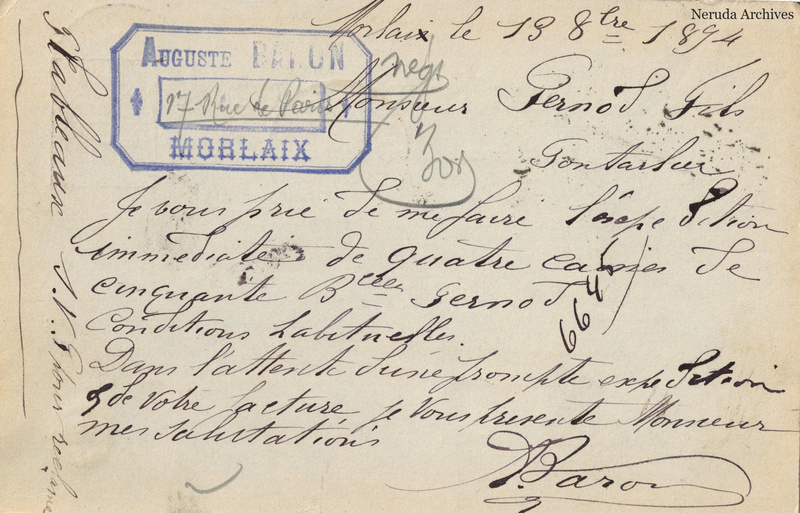 Neruda Archives
Morlaix le 13 8bre 1894
AUGUSTE BARON
17 Rue de Paris
MORLAIX
Monsieur Pernod Fils
Pontarlier
Je vous prie de me faire l'éxpedition
immédiate de quatre caisses de
cinquante Blles Pernod
Conditions habituelles.
Dans l'attente d'une prompte expedition
& de votre facture je vous presente Monsieur
mes salutations
A. Baron
664
tableaux S.V.P. pour reclame